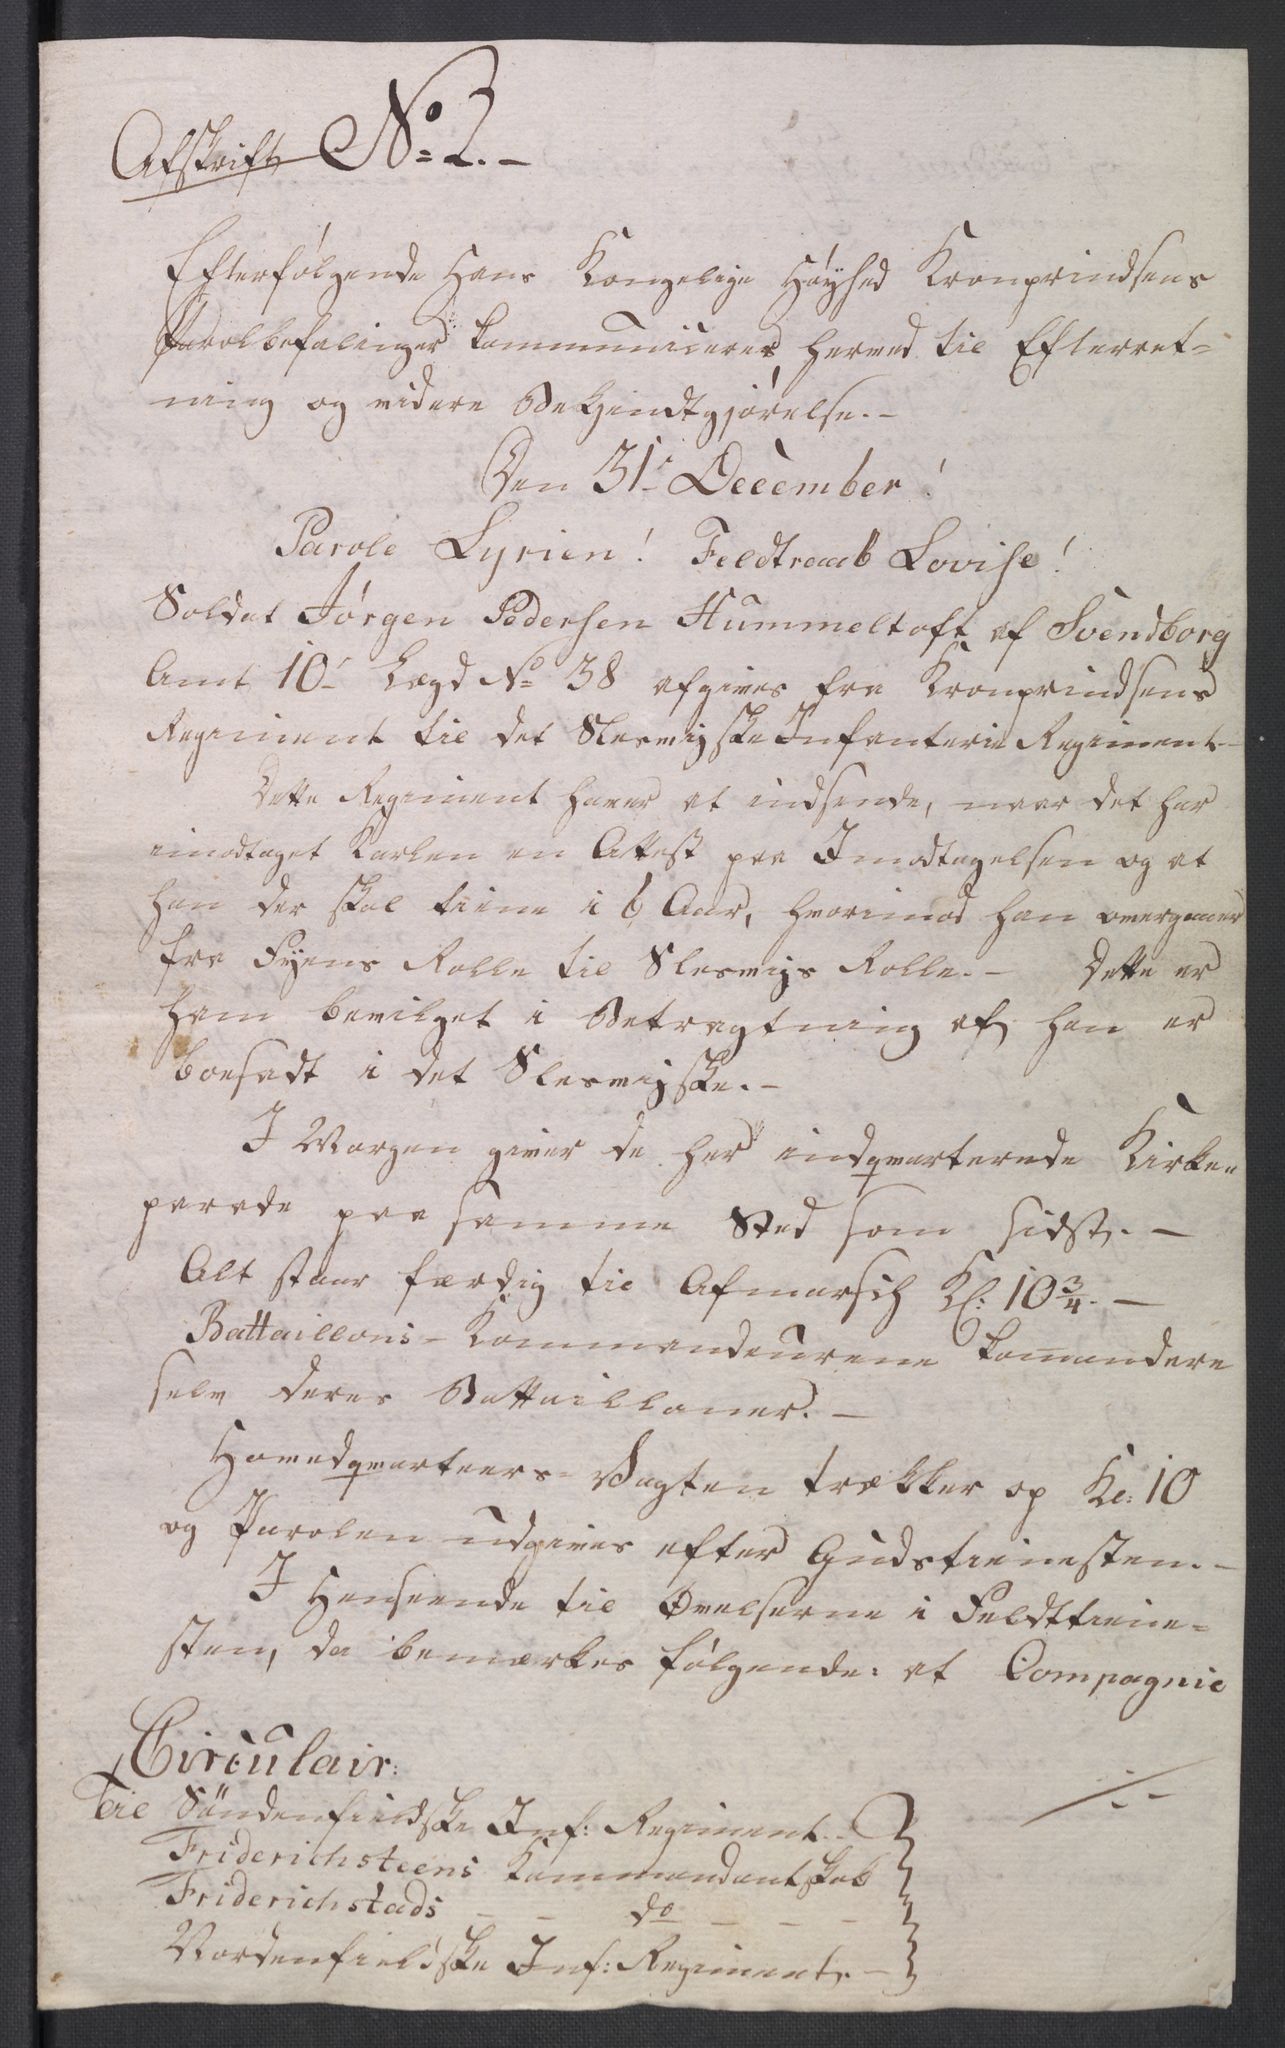 Afskrift No 2.-
Efterfølgende Hans Kongelige Høyhed Kronprindsens
Parolbefalinger kommuniceres herved til Efterret-
ning og videre Bekjendtgjørelse.-
Den 31te December!
Parole Lyrien! Feldtraab Lovise!
Soldat Jørgen Pedersen Hummeltoft af Svendborg
Amt 10de Lægd No 38 afgives fra Kronprindsens
Regiment til det Slesvigske Infanterie Regiment.-
Dette Regiment haver at indsende, naar det har
imodtaget Karlen en Attest paa Imodtagelsen og at
han der skal tiene i 6 Aar, hvorimod han overgaaer
fra Fyens Rolle til Slesvigs Rolle.- Dette er
ham bevilget i Betragtning af han er
boesadt i det Slesvigske.-
I Morgen giver de her indqvarterede Kirke-
parade paa samme Sted som sidst.-
Alt staar færdig til Afmarsch Kl: 10 3/4.-
Battaillons-Kommandeurene komandere
selv deres Battailloner.-
Hovedqvarteers-Vagten trækker op Kl: 10
og Parolen udgives efter Gudstienesten.-
I Henseende til Øvelserne i Feldttiene-
sten, da bemærkes følgende: at Compagnie
Circulair:
Til Søndenfieldske Inf: Regiment.-
Friderichsteens Kommandantskab
Friderichstads - - do - - -
Nordenfieldske Inf: Regiment.-